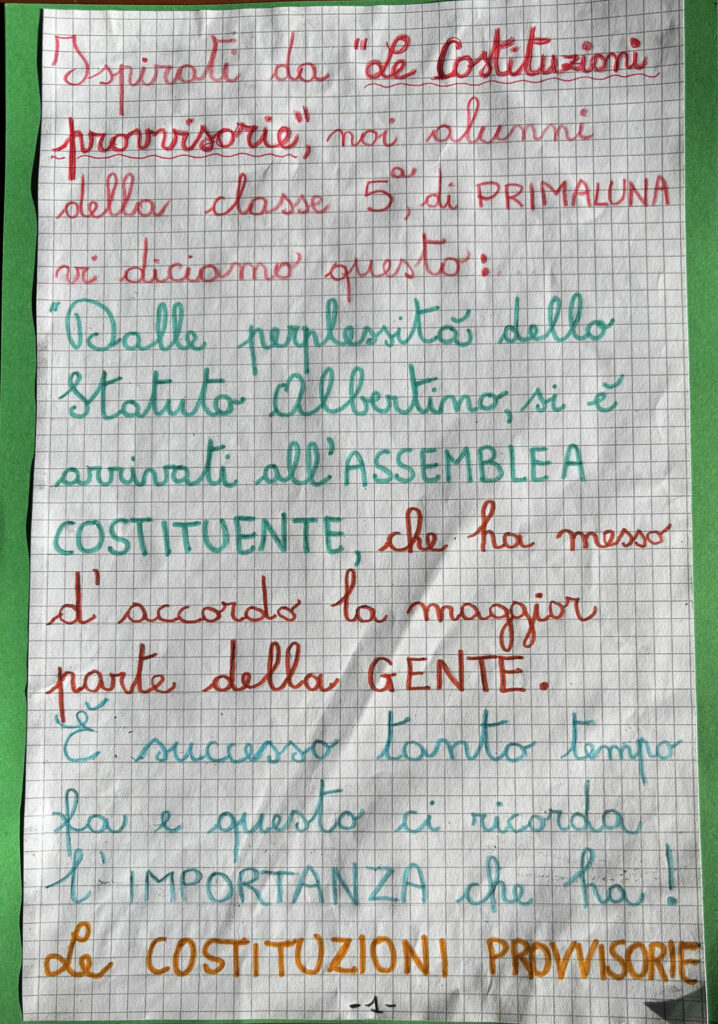 Ispirati da "Le Costituzioni
provvisorie", noi alunni
della classe 5ª, di PRIMALUNA
vi diciamo questo:
"Dalle perplessità dello
Statuto Albertino, si è
arrivati all'ASSEMBLEA
COSTITUENTE, che ha messo
d'accordo la maggior
parte della GENTE.
È successo tanto tempo
fa e questo ci ricorda
l'IMPORTANZA che ha!
Le COSTITUZIONI PROVVISORIE
-1-